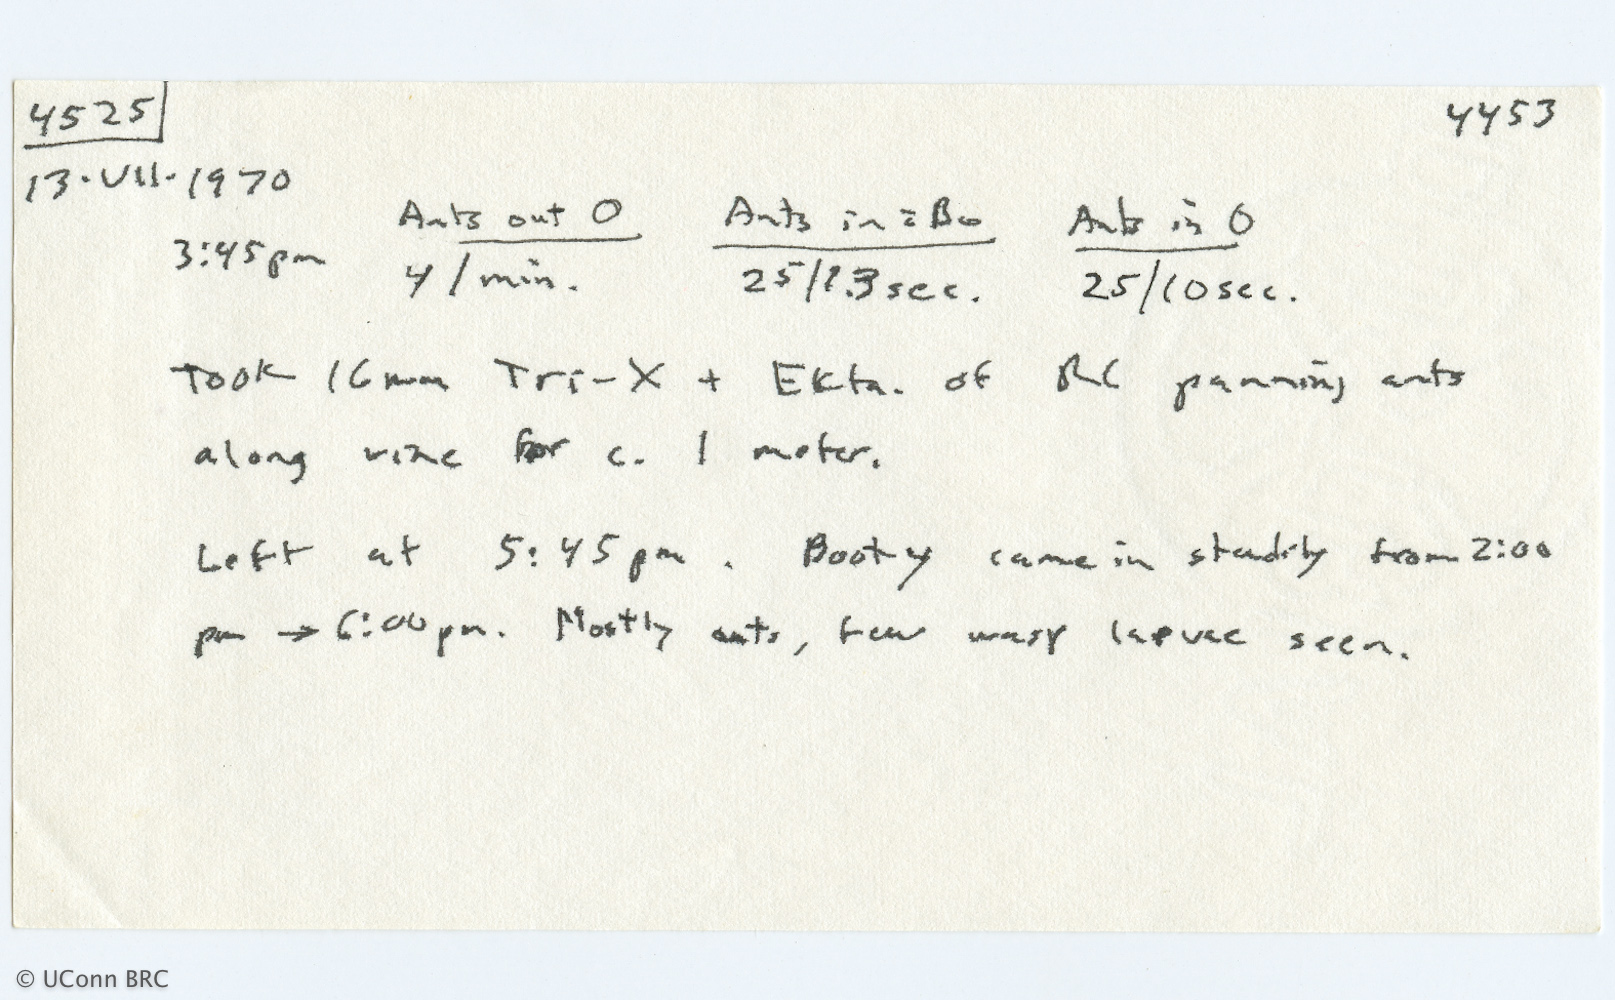 4525 4453
13·VII·1970
Ants out O Ants in c̄ Bo Ants in O
3:45pm 4/min. 25/13sec. 25/10sec.
Took 16mm Tri-X + Ekta. of RC panning ants
along vine for c. 1 meter.
Left at 5:45pm. Booty came in steadily from 2:00
pm → 6:00pm. Mostly ants, few wasp larvae seen.
© UConn BRC